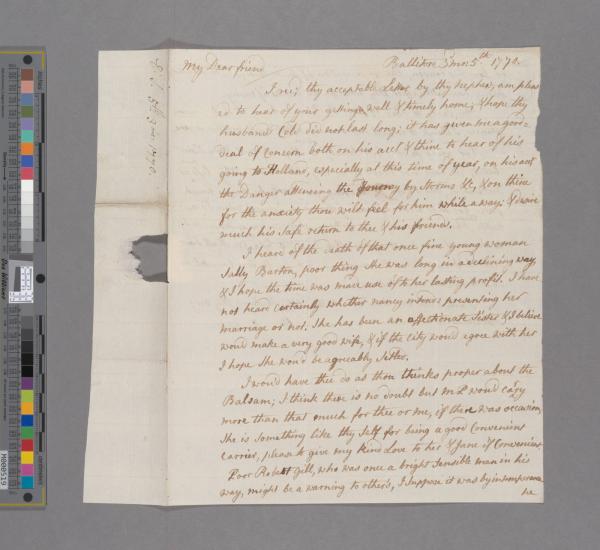 My Dear friend Ballitore 3mo: 5th 1792.
I reċ'd thy acceptable Letter by thy nephew, am pleas
ed to hear of your getting well & timely home, & hope thy
husbands Cold did not last long; it has given me a good
deal of Concern both on his acct & thine to hear of his
going to Holland, especially at this time of year, on his acct
the Danger attending the Journey by Storms &c, & on thine
for the anxiety thou wilt feel for him while away; & desire
much his safe return to thee & his friends.
I heard of the death of that once fine young woman
Sally Barton, poor thing She was long in a declining way,
& I hope the time was made use of to her lasting profit. I have
not heard Certainly whether nancy intends presenting her
marriage or not. She has been an affectionate Sister & I believe
would make a very good wife, & if the City would agree with her
I hope She wou'd be agreably Settled.
I would have thee do as thou thinks proper about the
Balsam; I think there is no doubt but M L would carry
more than that much for thee or me, if there was occasion,
She is something like thy Self for being a good Convenient
Carrier, please to give my kind Love to her & Jane if Convenient
Poor Robert Gill, who was once a bright Sensible man in his
way, might be a warning to others, I suppose it was by intemperance
he
M000519